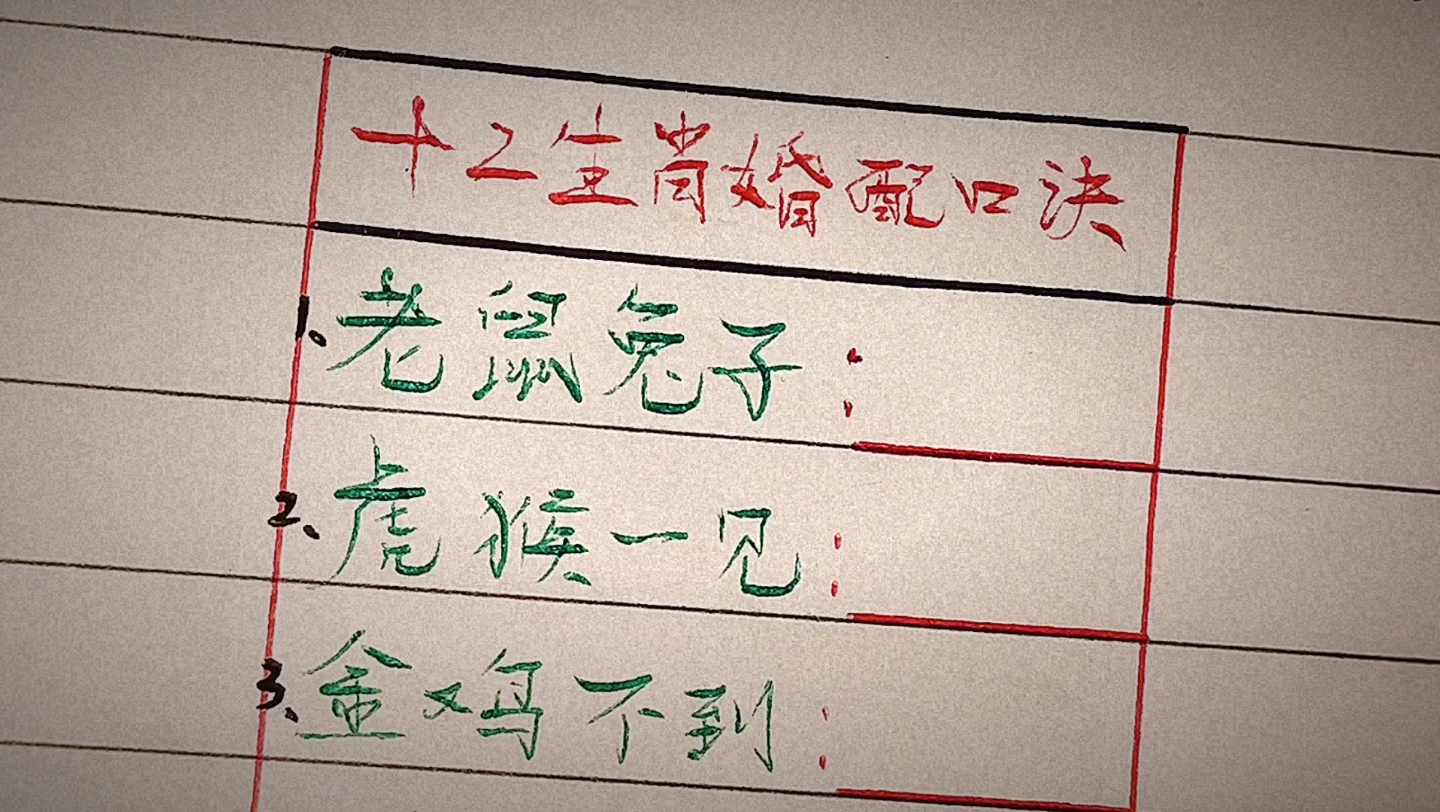 十二生肖婚配口决
1、老鼠兔子：
2、虎猴一见：
3、金鸡不到：